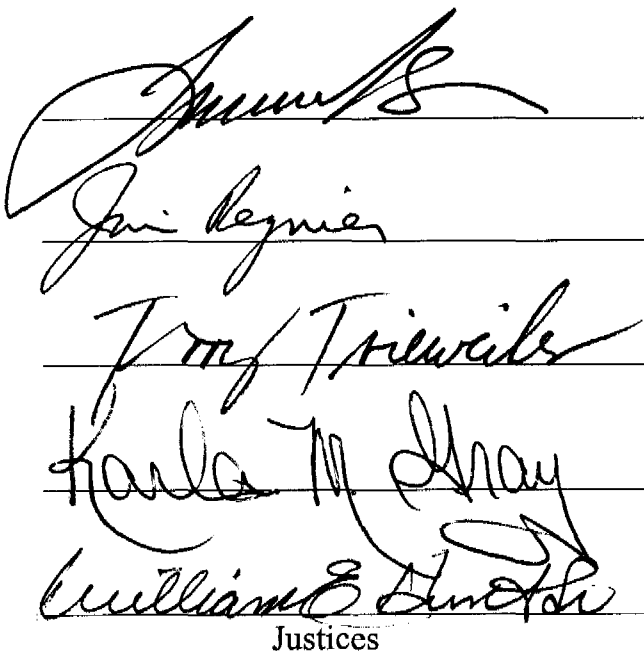 Jim Regnier
Terry Trieweiler
Karla M Gray
William E Hunt Sr
Justices